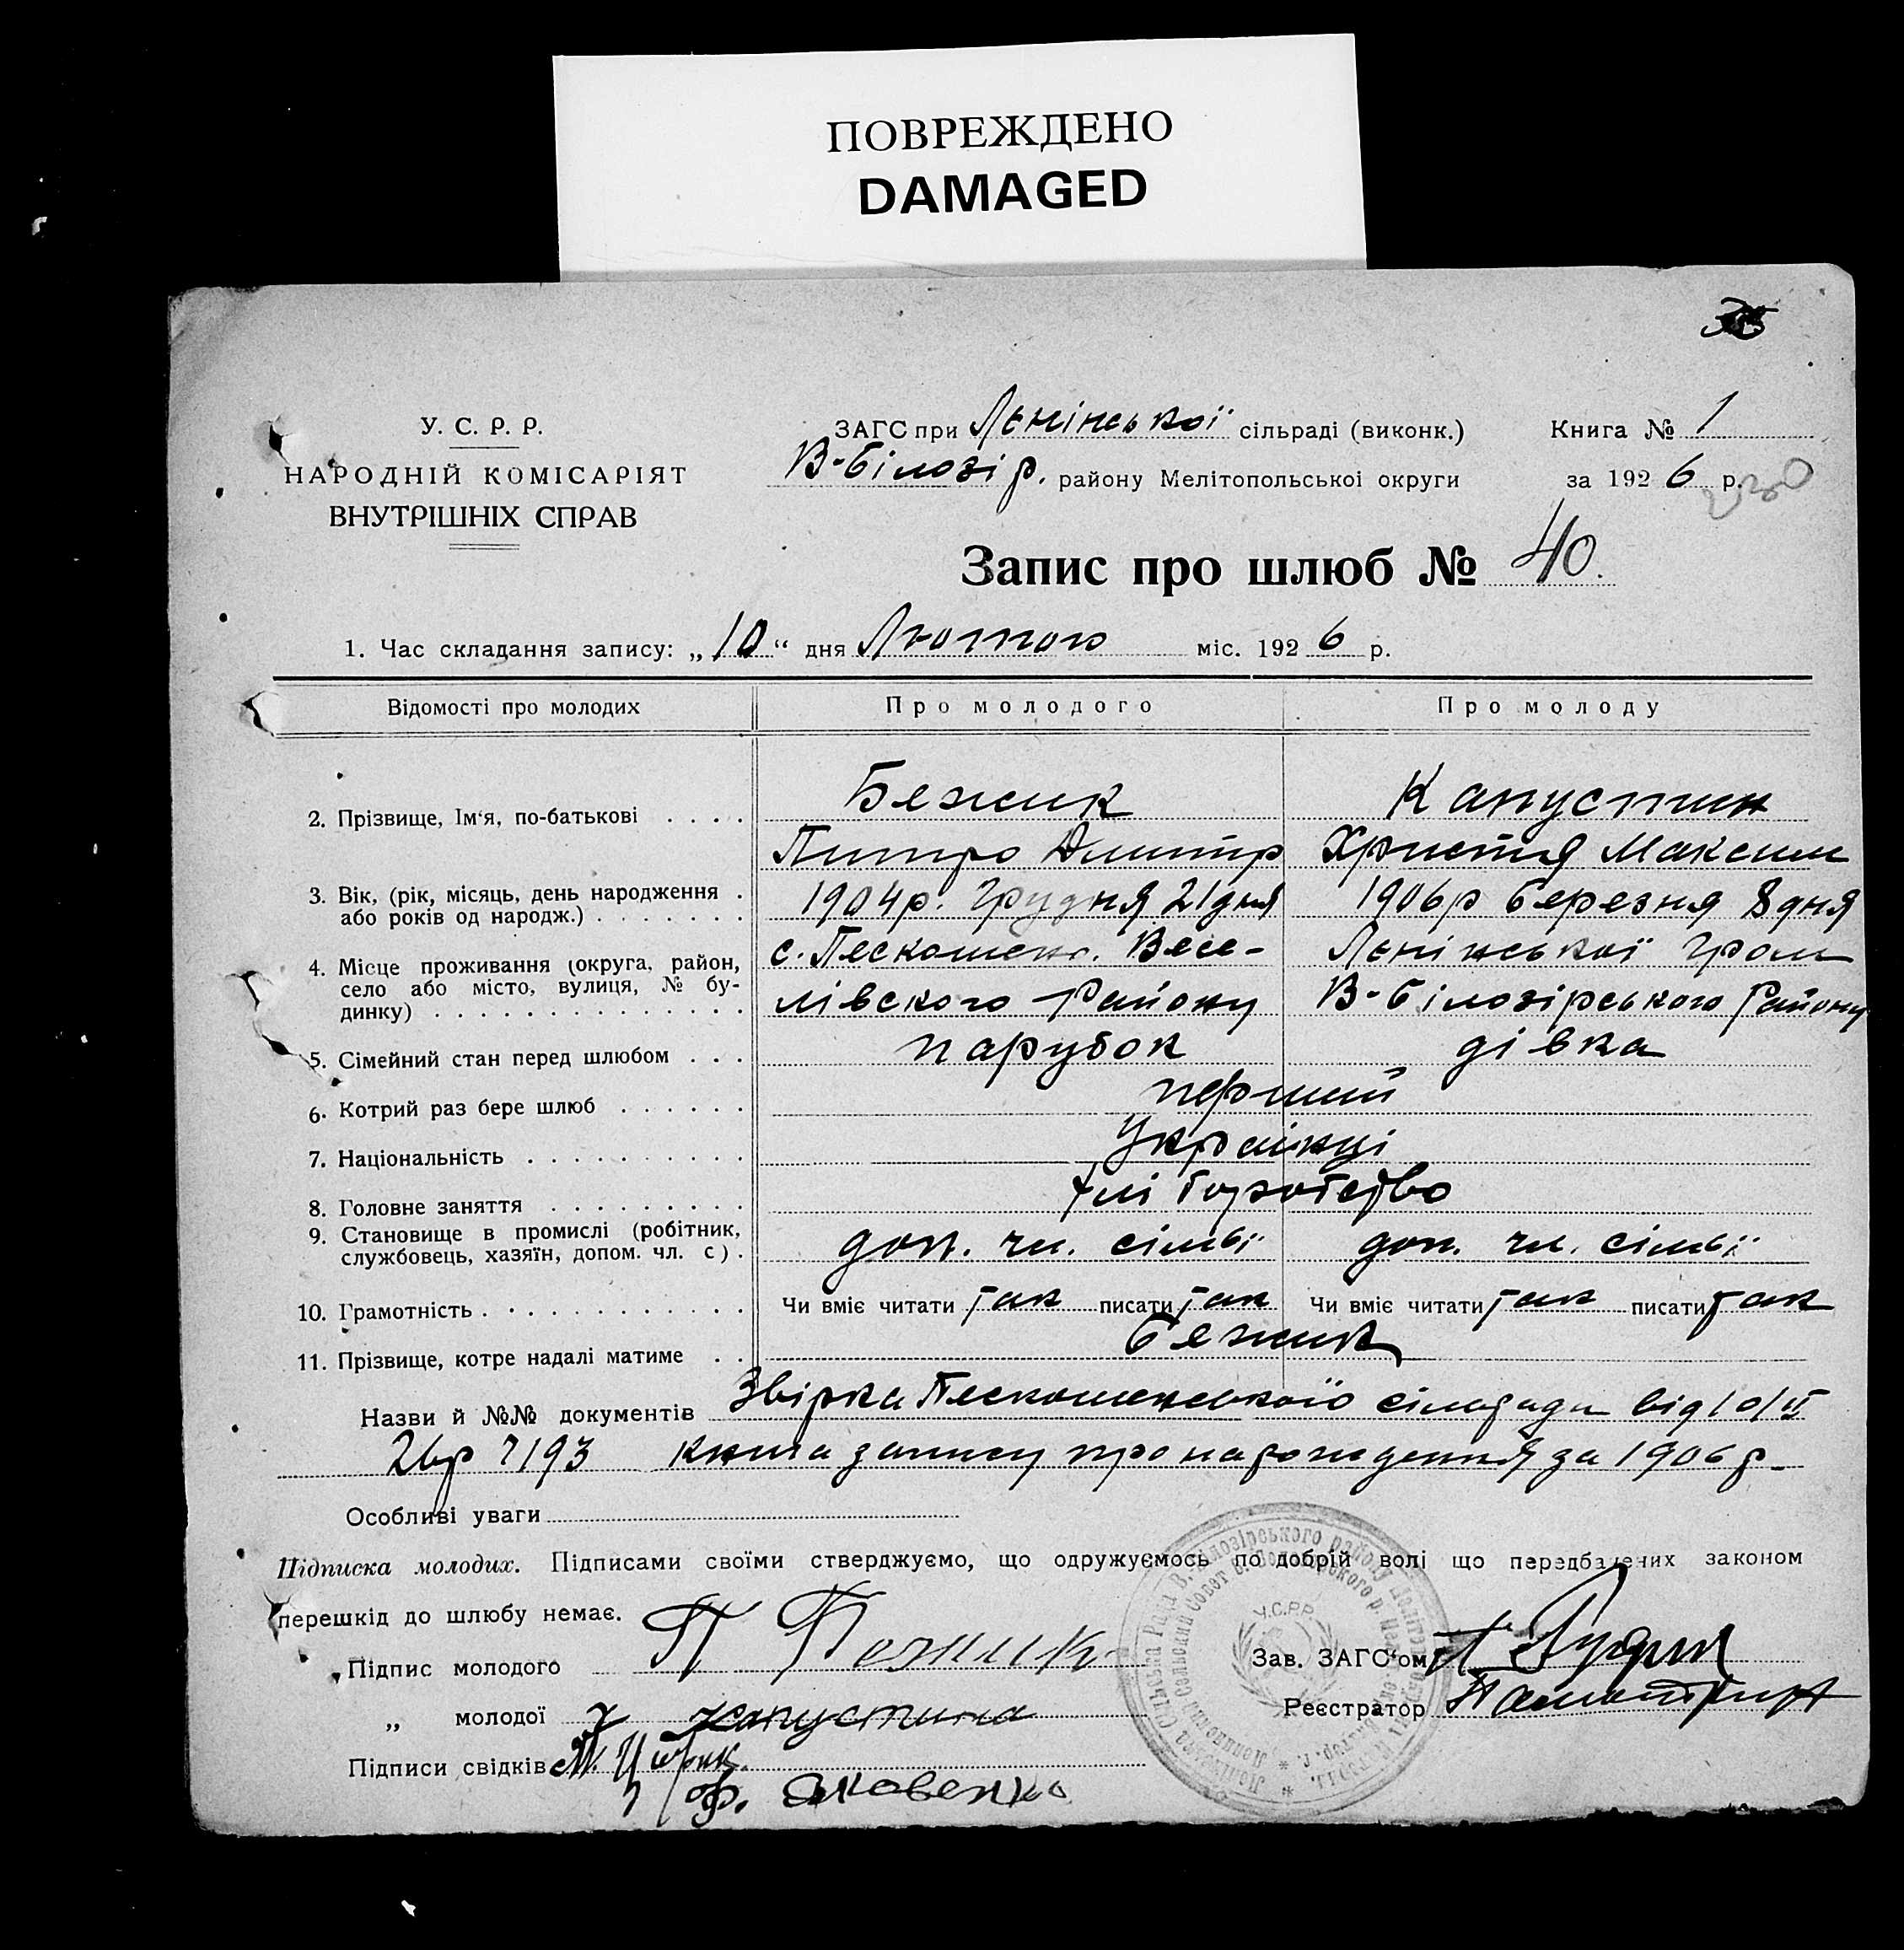 ПОВРЕЖДЕНО
DAMAGED
У. С. Р. Р.
НАРОДНІЙ КОМІСАРІЯТ
ВНУТРІШНІХ СПРАВ
ЗАГС при Лєнінської сільраді (виконк.)
В-Білозір. району Мелітопольської округи
Книга № 1
за 1926 р.
230
Запис про шлюб № 40.
1. Час складання запису: „10“ дня Лютого міс. 1926 р.
Відомості про молодих Про молодого Про молоду
2. Прізвище, Ім‘я, по-батькові Бежик Капустин
Питро Дмитр Христя Максим
3. Вік, (рік, місяць, день народження або років од народж.) 1904р. Грудня 21 дня 1906р Березня 8 дня
4. Місце проживання (округа, район, село або місто, вулиця, № будинку) с. Пескошено. Весе-
лівского Району
Лєнінської Гром
В-Білозірського Району
5. Сімейний стан перед шлюбом парубок дівка
6. Котрий раз бере шлюб перший
7. Національність Українці
8. Головне заняття хліборобство
9. Становище в промислі (робітник, службовець, хазяїн, допом. чл. с) доп. чл. сімьї доп. чл. сімьї
10. Грамотність Чи вміє читати так писати так Чи вміє читати так писати так
11. Прізвище, котре надалі матиме Бежик
Назви й №№ документів Звірка Пескошенської сільради від 10/ІІ
26р 7193 книга запису про нарождення за 1906р.
Особливі уваги
Підписка молодих. Підписами своїми стверджуємо, що одружуємось по добрій волі що передбачених законом
перешкід до шлюбу немає.
Підпис молодого П Бежик
„ молодої Х Капустина
Підписи свідків
Ф. Яковенко
Зав. ЗАГС‘ом
Реєстратор
У.С.Р.Р.